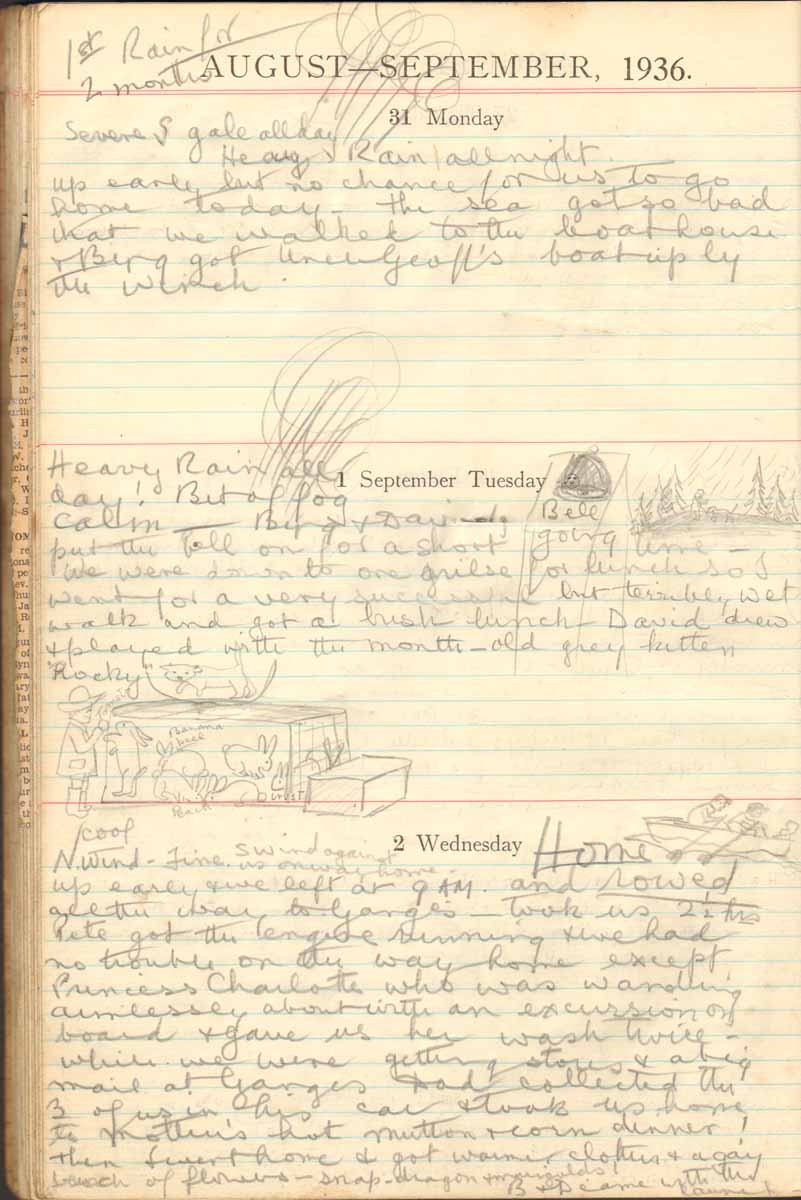 1st Rain for
2 months
AUGUST—SEPTEMBER, 1936.
31 Monday
Severe S gale all day
Heavy Rain all night.
up early but no chance for us to go
home today - the sea got so bad
that we walked to the boathouse
& got Uncle Geoff's boat up by
the winch.
Heavy Rain all
1 September Tuesday
day! Bit of fog
Calm — & David
Bell
put the bell on for a short
going
time -
We were down to one grilse for lunch so I
went for a very successful but terribly wet
walk and got a bush lunch - David drew
& played with the month-old grey kitten
"Rocky"
Banana
Peach
cool
2 Wednesday
Home
N. Wind - Fine. S wind against
us on way home
up early & we left at 9 AM. and rowed
all the way to Ganges - took us 2½ hrs
Pete got the engine running & we had
no trouble on the way home except
Princess Charlotte who was wandering
aimlessly about with an excursion on
board & gave us her wash twice -
while we were getting stores & a big
mail at Ganges Dad collected the
3 of us in his car & took us home
to Mother's hot mutton & corn dinner!
then I went home & got warmer clothes & a gay
bunch of flowers - snap-dragon & marigolds!
B & D came with the